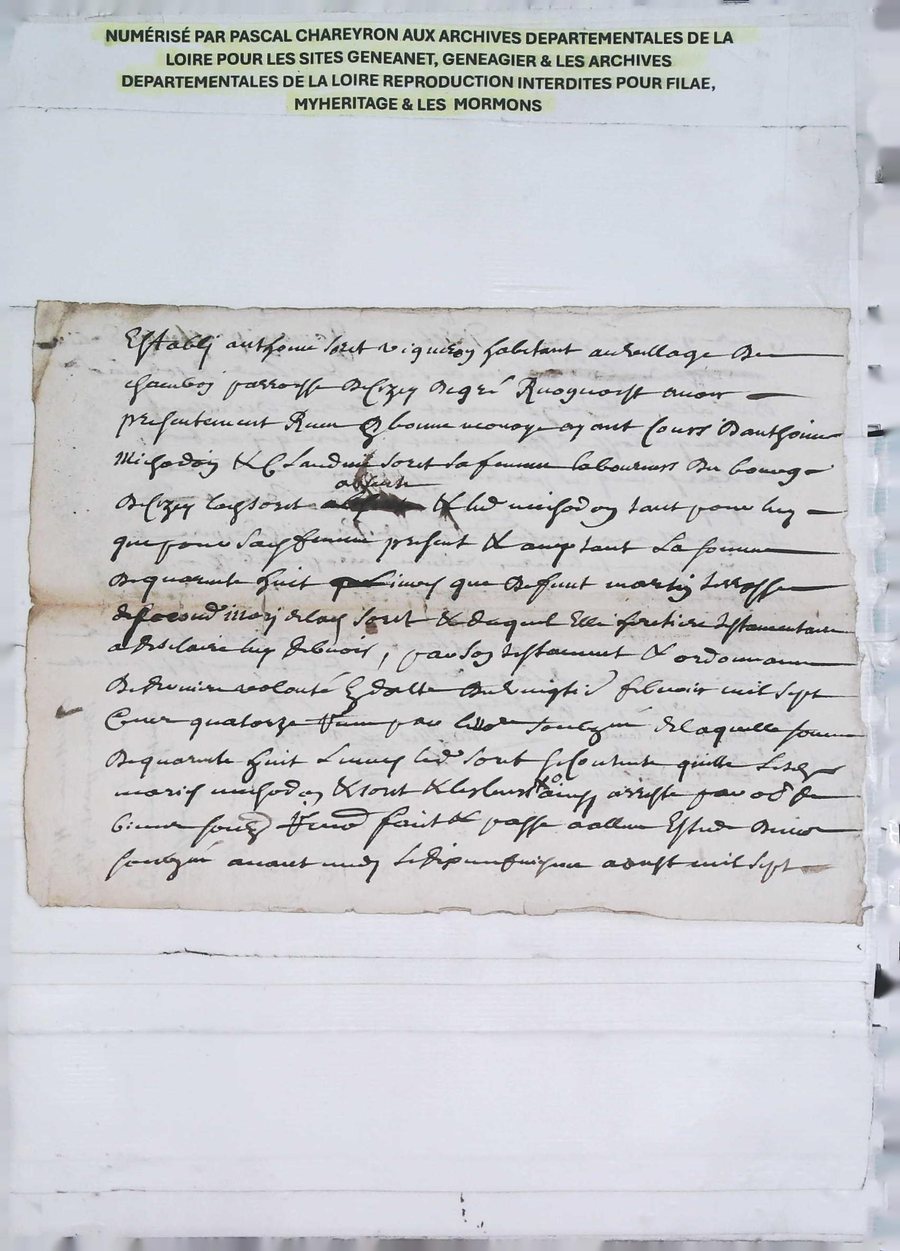 NUMÉRISÉ PAR PASCAL CHAREYRON AUX ARCHIVES DEPARTEMENTALES DE LA
LOIRE POUR LES SITES GENEANET, GENEAGIER & LES ARCHIVES
DEPARTEMENTALES DE LA LOIRE REPRODUCTION INTERDITES POUR FILAE,
MYHERITAGE & LES MORMONS
Establj anthoine soret vigneron habitant au village de
chambon parroisse de de gré Recognoist avoir
presentement Receu de bonne monoye ayant cours d'anthoine
Michodon & Claudine soret sa femme laboureurs du bourg
absente
de lad soret & led michodon tant pour luy
que pour sad femme present & acceptant La somme
de quarante huit Livres que deffunt martin
second mary de lad soret & duquel Elle heritiere testamentaire
a desclaire luy debvoir, par son testament & ordonnance
de derniere volonté En datte du vingt febvrier mil sept
Cents quatorze Receu par le nore soubzné de laquelle somme
de quarante huit Livres led soret Se Contente quitte Lesd
mariés michodon & soret & les leurs par
biens soubz fait & passé a Estude du nore
soubzné avant midy Le aoust mil sept